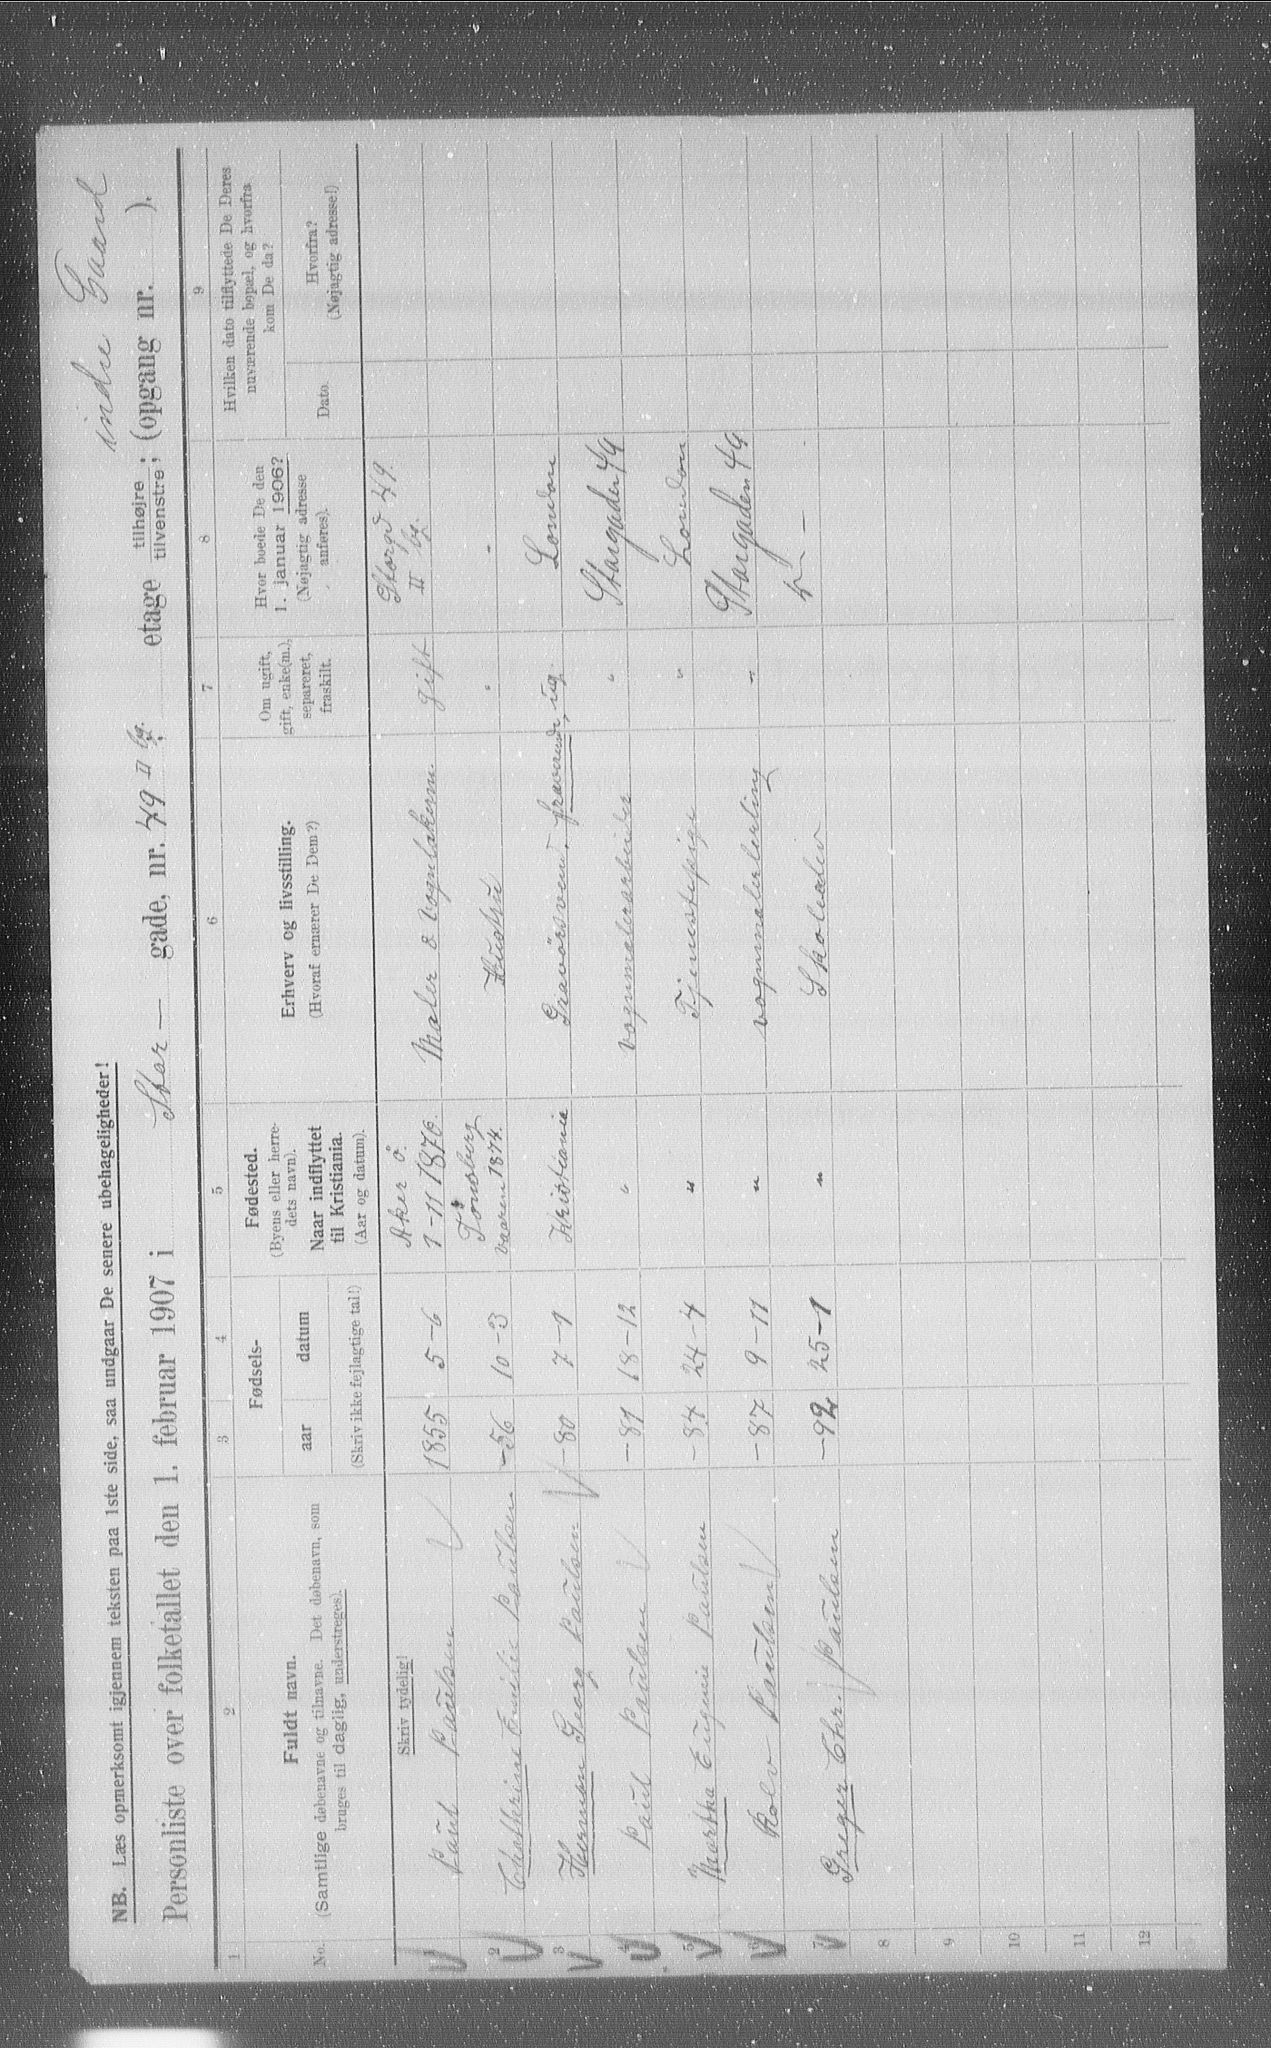 indre Gaard
NB. Læs opmerksomt igjennem teksten paa 1ste side, saa undgaar De senere ubehageligheder!
Personliste over folketallet den 1. februar 1907 i Stor — gade, nr. 49 II bg. etage tilhøjre; tilvenstre; (opgang nr. ).
1 2 3 4 5 6 7 8 9
No. Fuldt navn. (Samtlige døbenavne og tilnavne. Det døbenavn, som bruges til daglig, understreges).
Fødsels-
aar datum
(Skriv ikke fejlagtige tal!)
Fødested. (Byens eller herredets navn). Naar indflyttet til Kristiania. (Aar og datum).
Erhverv og livsstilling. (Hvoraf ernærer De Dem?)
Om ugift, gift, enke(m.), separeret, fraskilt.
Hvor boede De den 1. januar 1906? (Nøjagtig adresse anføres).
Hvilken dato tilflyttede De Deres nuværende bopæl, og hvorfra kom De da?
Dato. Hvorfra? (Nøjagtig adresse!)
Skriv tydelig!
1 Paul Paulsen 1855 5-6 Aker ö. 1-11 1876. Maler & Vognlakerer. gift Storgd 49. II bg.
2 Emilie Paulsen -56 10-3 Tönsberg vaaren 1874. Hustru " -
3 Herman Georg Paulsen -80 7-1 Kristiania Gravörsvend, fraværende, ug. London
4 Paul Paulsen -81 18-12 " vognmalerarbeider " Storgaden 49
5 Martha Eugenie Paulsen -84 24-4 " Tjenestepige " London
6 Rolv Paulsen -87 9-11 " vognmalerlærling " Storgaden 49
7 Greger Chr. Paulsen -92 25-1 " Skoleelev -
8
9
10
11
12